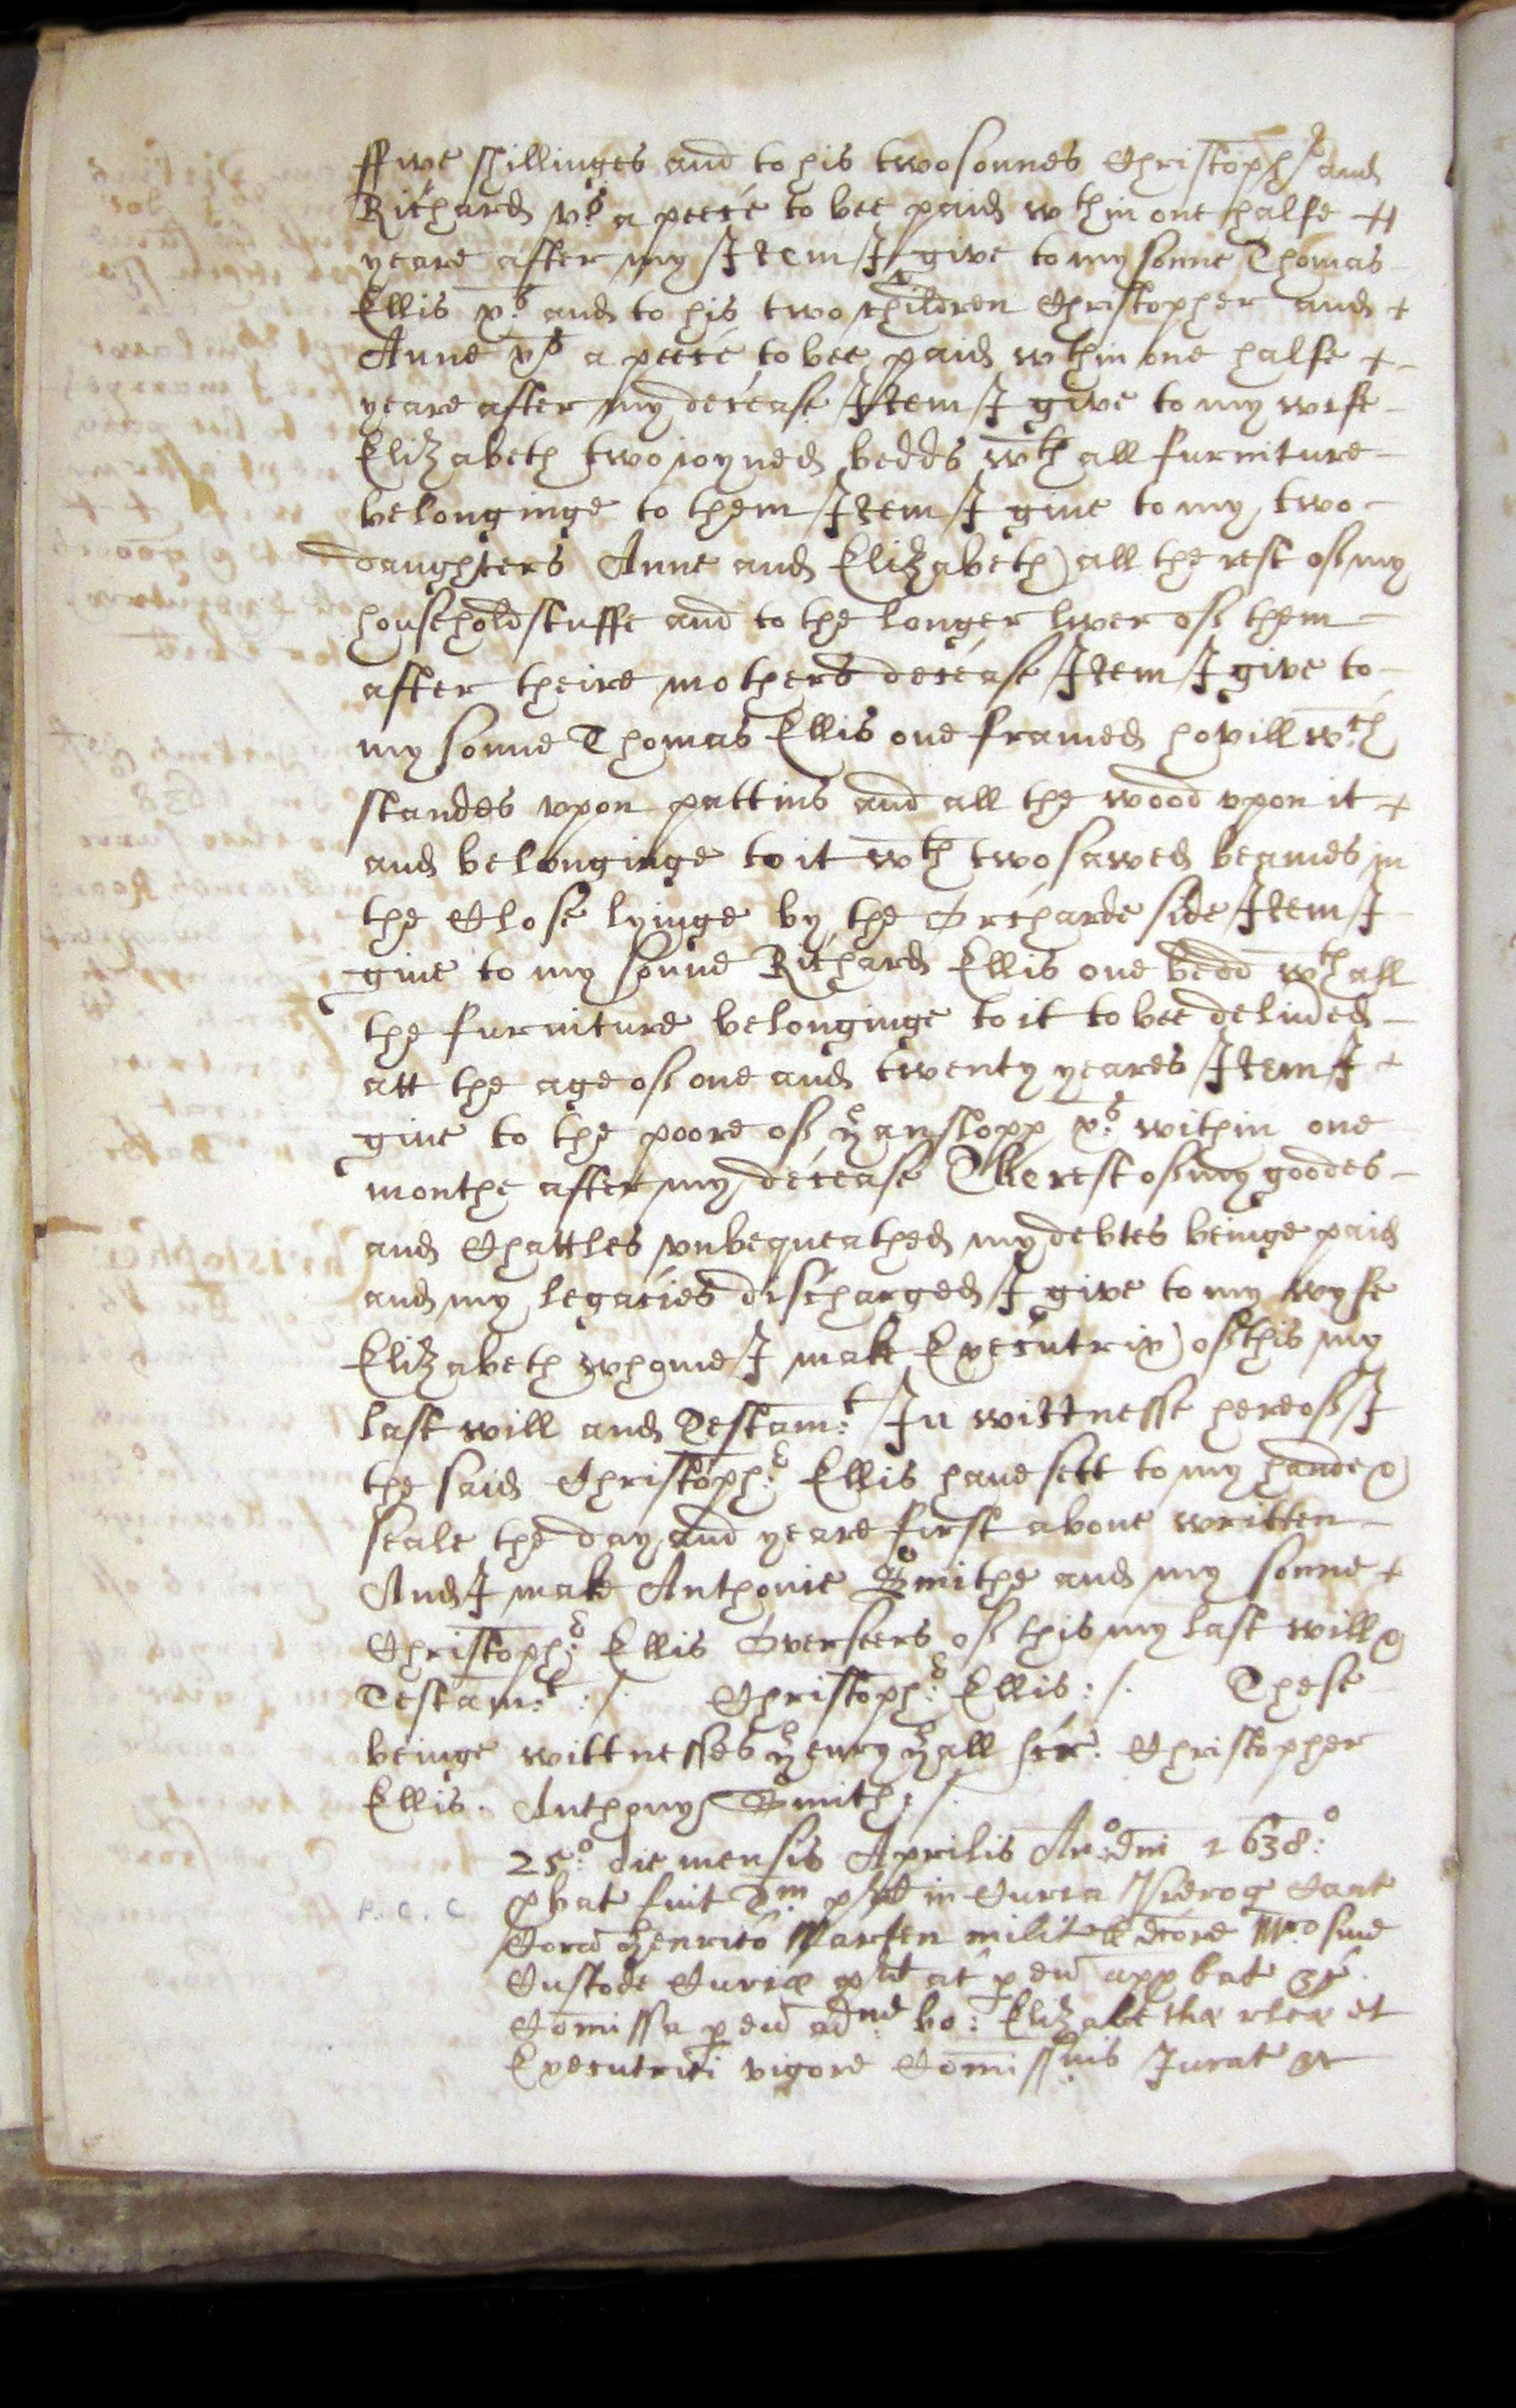 ffive shillinges and to his two sonnes Christoph:r and
Richard vs a peece to bee paid wthin one halfe
yeare after my Item I give to my sonne Thomas
Ellis vs and to his two children Christopher and
Anne vs a peece to bee paid wthin one halfe
yeare after my decease Item I give to my wife
Elizabeth two joyned bedds wth all furniture
belonginge to them Item I give to my two
daughters Anne and Elizabeth all the rest of my
householdstuffe and to the longer liver of them
after theire mothers decease Item I give to
my sonne Thomas Ellis one framed hovill wch
standes vpon pattins and all the wood vpon it
and belonginge to it wth two sawed beames in
the Close lyinge by the Orcharde side Item I
give to my sonne Richard Ellis one bedd wth all
the furniture belonginge to it to bee deliued
att the age of one and twenty yeares Item I
give to the poore of Hanslopp vs within one
monthe after my decease The rest of my goodes
and Chattles vnbequeathed my debtes beinge paid
and my legacies discharged I give to my wyfe
Elizabeth whome I make Executrix of this my
last will and Testam:t In wittnesse hereof I
the said Christoph:r Ellis have sett to my hande &
seale the day and yeare first above written
And I make Anthonie Smithe and my sonne
Christoph:r Ellis Overseers of this my last will &
Testam:t :/. Christoph:r Ellis :/. These
beinge wittnesses Henry Hall scr: Christopher
Ellis. Anthony Smith :/.
25:o die mensis Aprilis An:o dni 1638:o
pbat fuit Tm pd in Curia
P. C. C.
Coram Henrico Marten milit
Custode Curiæ at p eu app bat &c.
Comissa p eu adne bo: Elizabethæ rlcæ et
Executrici vigore Comissnis Jurat &c